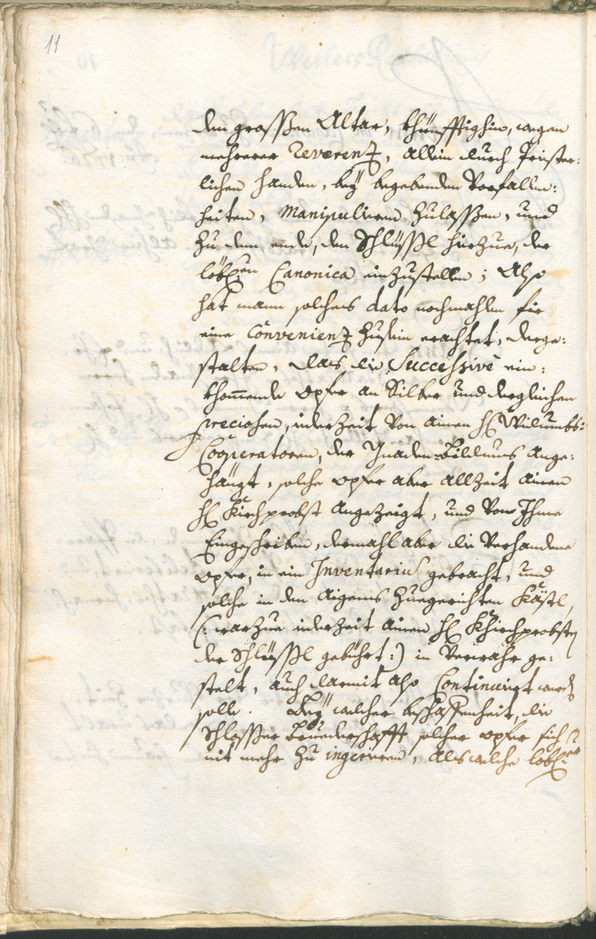 11
den grossen Altar, khünfftighin, wegen
mehrerer Reverenz, allein durch Priester-
lichen handen, bey begebenden Vorfallen-
heiten, Manipuliren zulassen, und
zu dem ende, den Schlüssl hierzue, der
löbl:en Canonica einzustellen; Also
hat mann solches dato nochmahlen für
eine Convenienz zusein erachtet, derge-
stalten, das die Successivè ein-
khommende opfer an Silber und dergleichen
preciosen, iederzeit von ainen H:
Cooperatorn, der Gnaden-Bildtnus ange-
hängt, solche opfer aber allzeit ainen
H: Kirchprobst angezeigt, und von Ihme
Eingeschriben, dermahl aber die verhandene
opfer, in ein Inventarium gebracht, und
solche in den aigens zuegerichten Kästl,
(: warzue iederzeit ainen H: Khirchprobsten
der Schlüssl gebührt:) in verwahr ge-
stelt, auch darmit also Continuirt werden
solle. Bey welcher beschaffenheit, die
Schlosser Bruederschafft solcher opfer sich
nit mehr zu ingeriren, als welche löbl:e